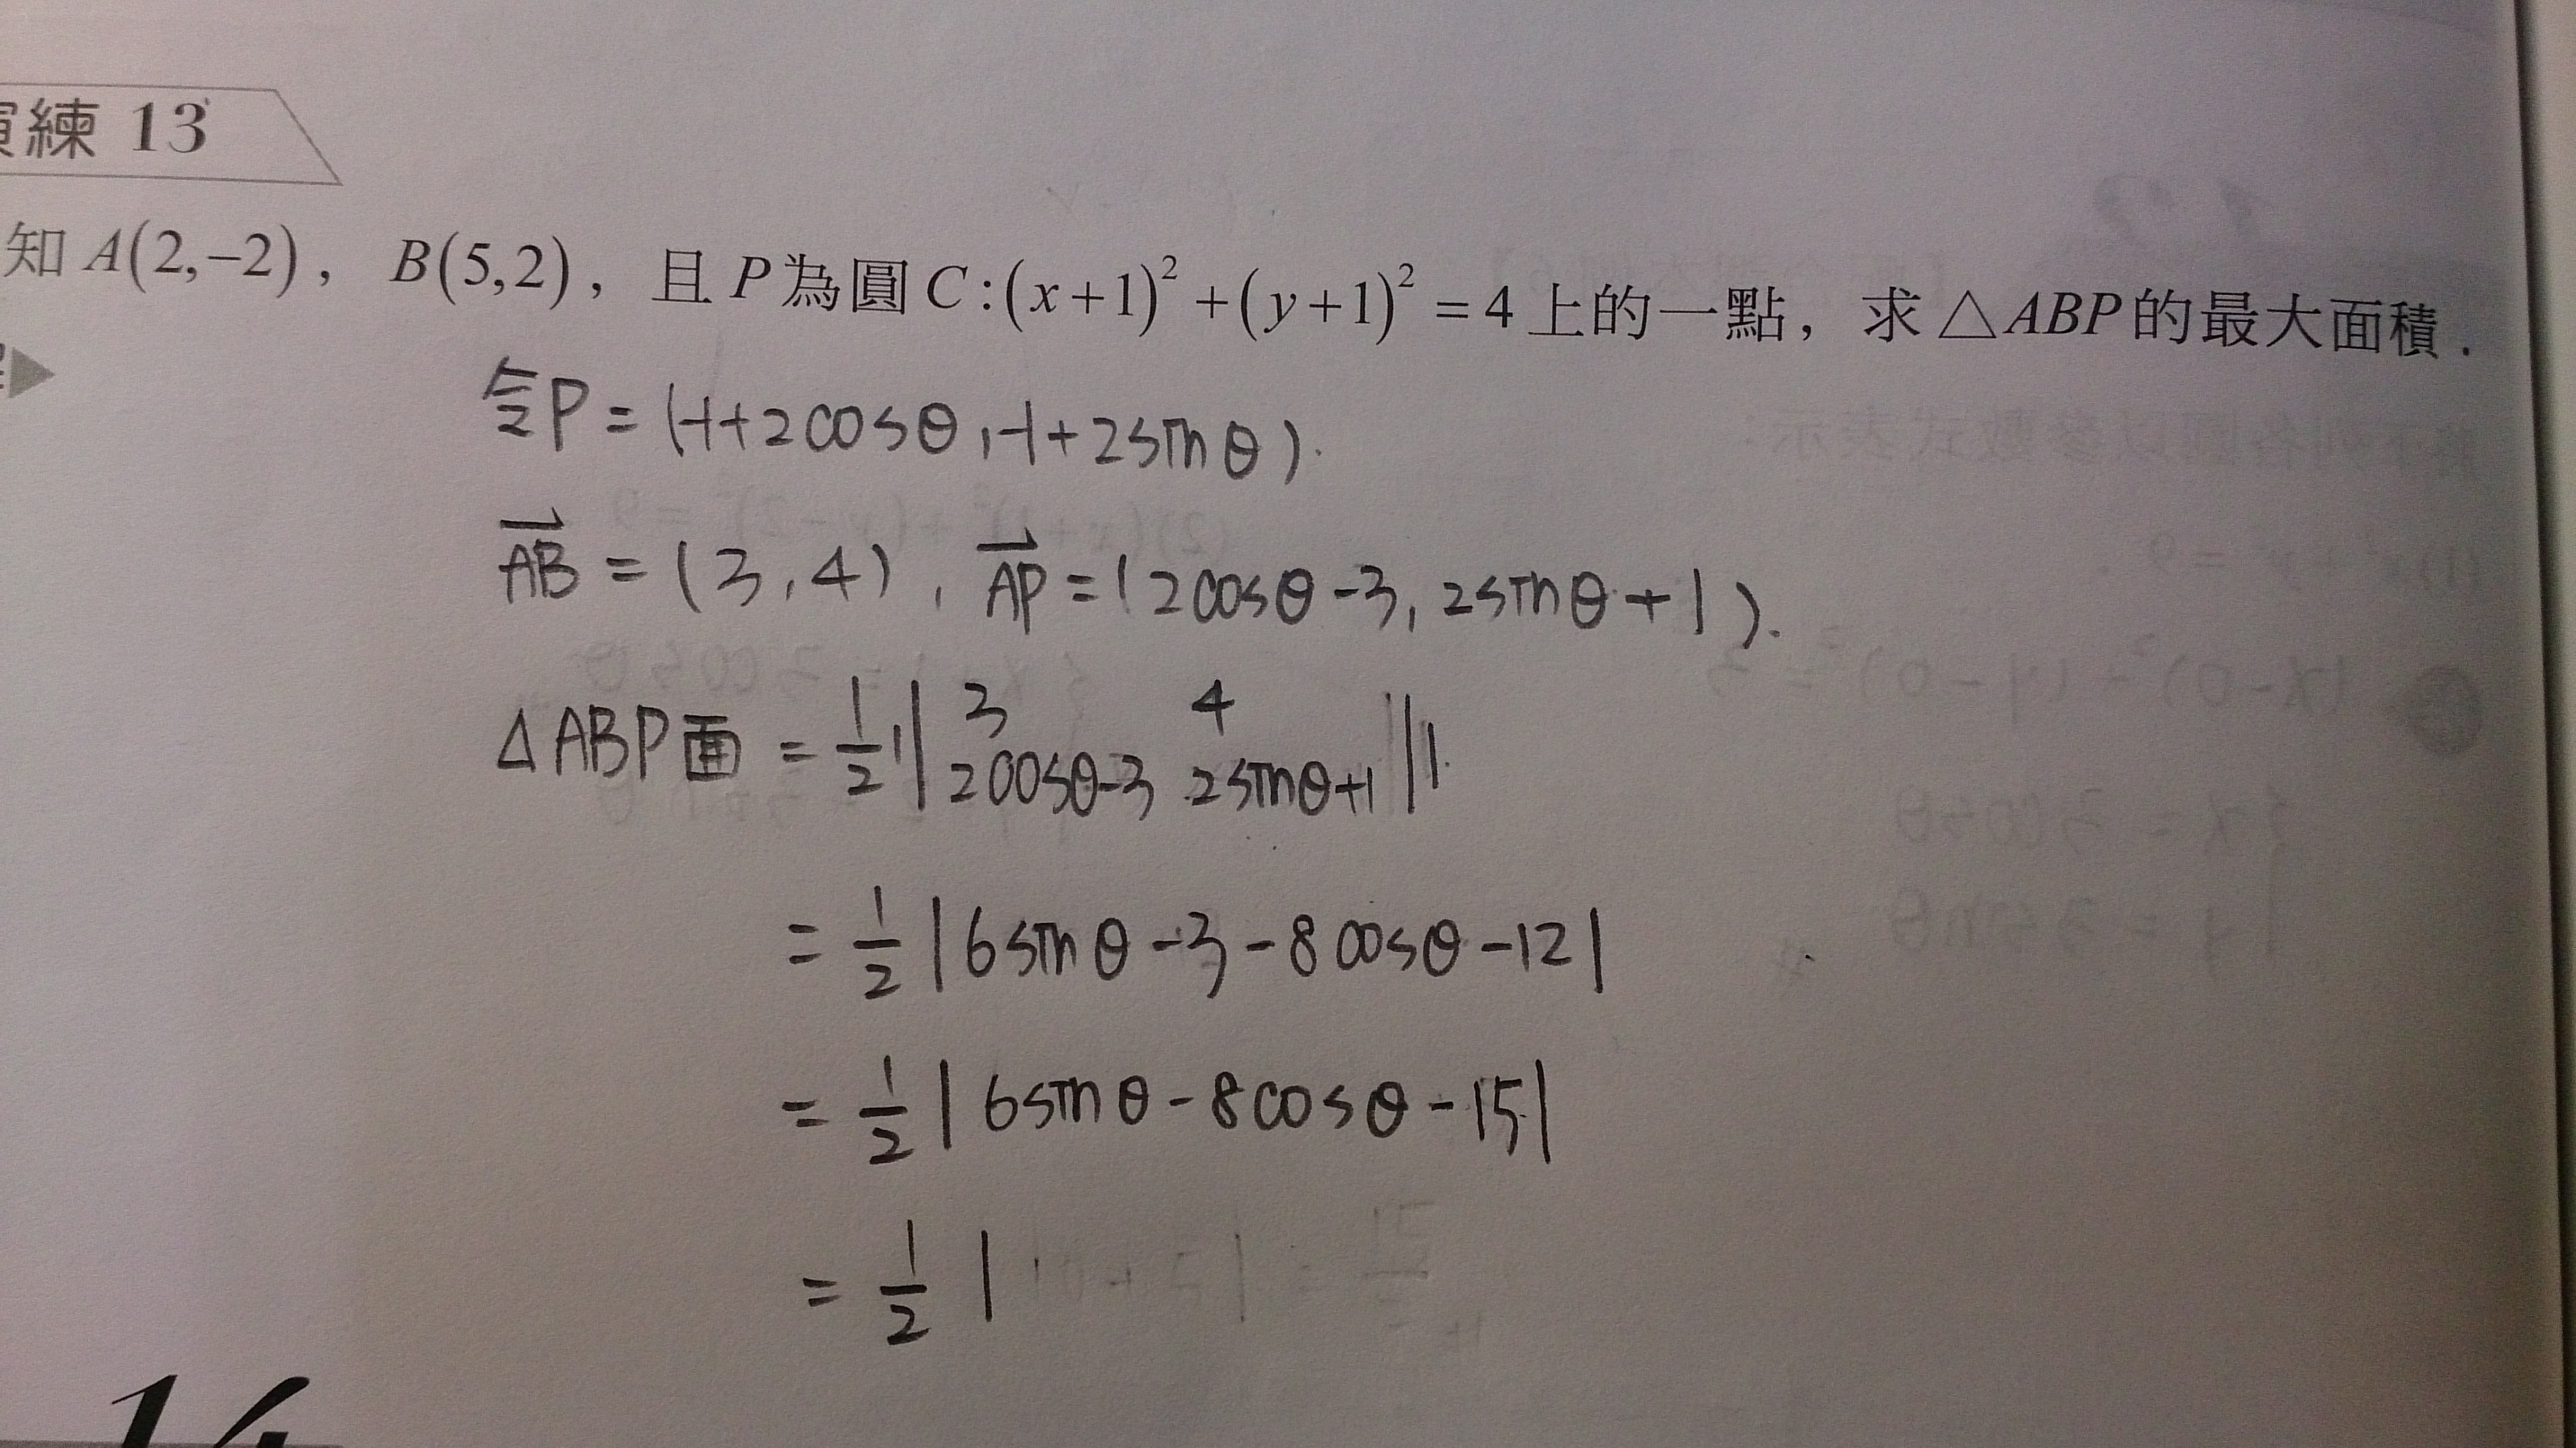 演練 13
知 A(2,−2)， B(5,2)，且 P 為圓 C:(x+1)²+(y+1)²=4 上的一點，求 △ABP 的最大面積．
令P = (-1+2cosθ, -1+2sinθ).
AB = (3, 4), AP = (2cosθ-3, 2sinθ+1).
△ABP面 = 1/2 || 3 4
2cosθ-3 2sinθ+1 ||
= 1/2 |6sinθ-3-8cosθ-12|
= 1/2 |6sinθ-8cosθ-15|
= 1/2 |
14